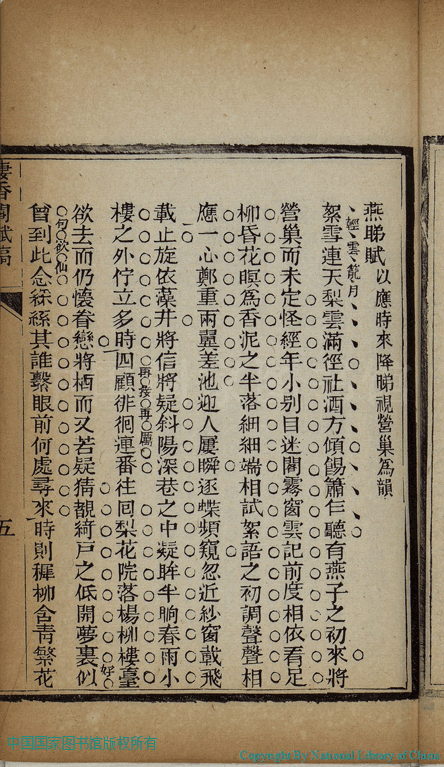 燕睇賦以應時來降睇視營巢為韻
輕雲籠月
絮雪連天梨雲滿徑社酒方傾餳簫乍聽有燕子之初來將
營巢而未定怪經年小别目迷閣霧窗雲記前度相依看足
柳昏花暝為香泥之半落細細端相試絮語之初調聲聲相
應一心鄭重兩翼差池迎人屢瞬逐蝶頻窺忽近紗窗載飛
載止旋依藻井將信將疑斜陽深巷之中疑眸半晌春雨小
再接再厲
樓之外佇立多時四顧徘徊連番往回梨花院落楊柳樓臺
好
欲去而仍懷眷戀將栖而又若疑猜覩綺戶之低開夢裏似
句欲仙
曾到此念絲絲其誰繫眼前何處尋來時則穉柳含青繁花
香閣賦稿
五
中国国家图书馆版权所有
Copyright By National Library of China